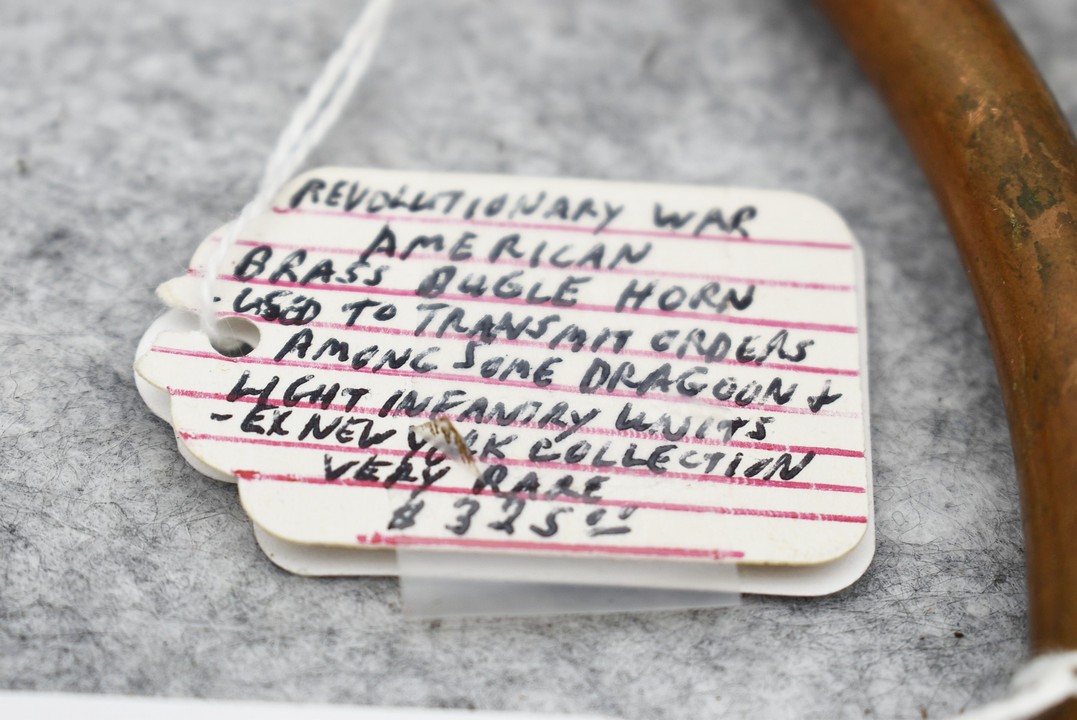 REVOLUTIONARY WAR
AMERICAN
BRASS BUGLE HORN
- USED TO TRANSMIT ORDERS
AMONG SOME DRAGOON &
LIGHT INFANTRY UNITS
- EX NEW YORK COLLECTION
VERY RARE
$ 325.00